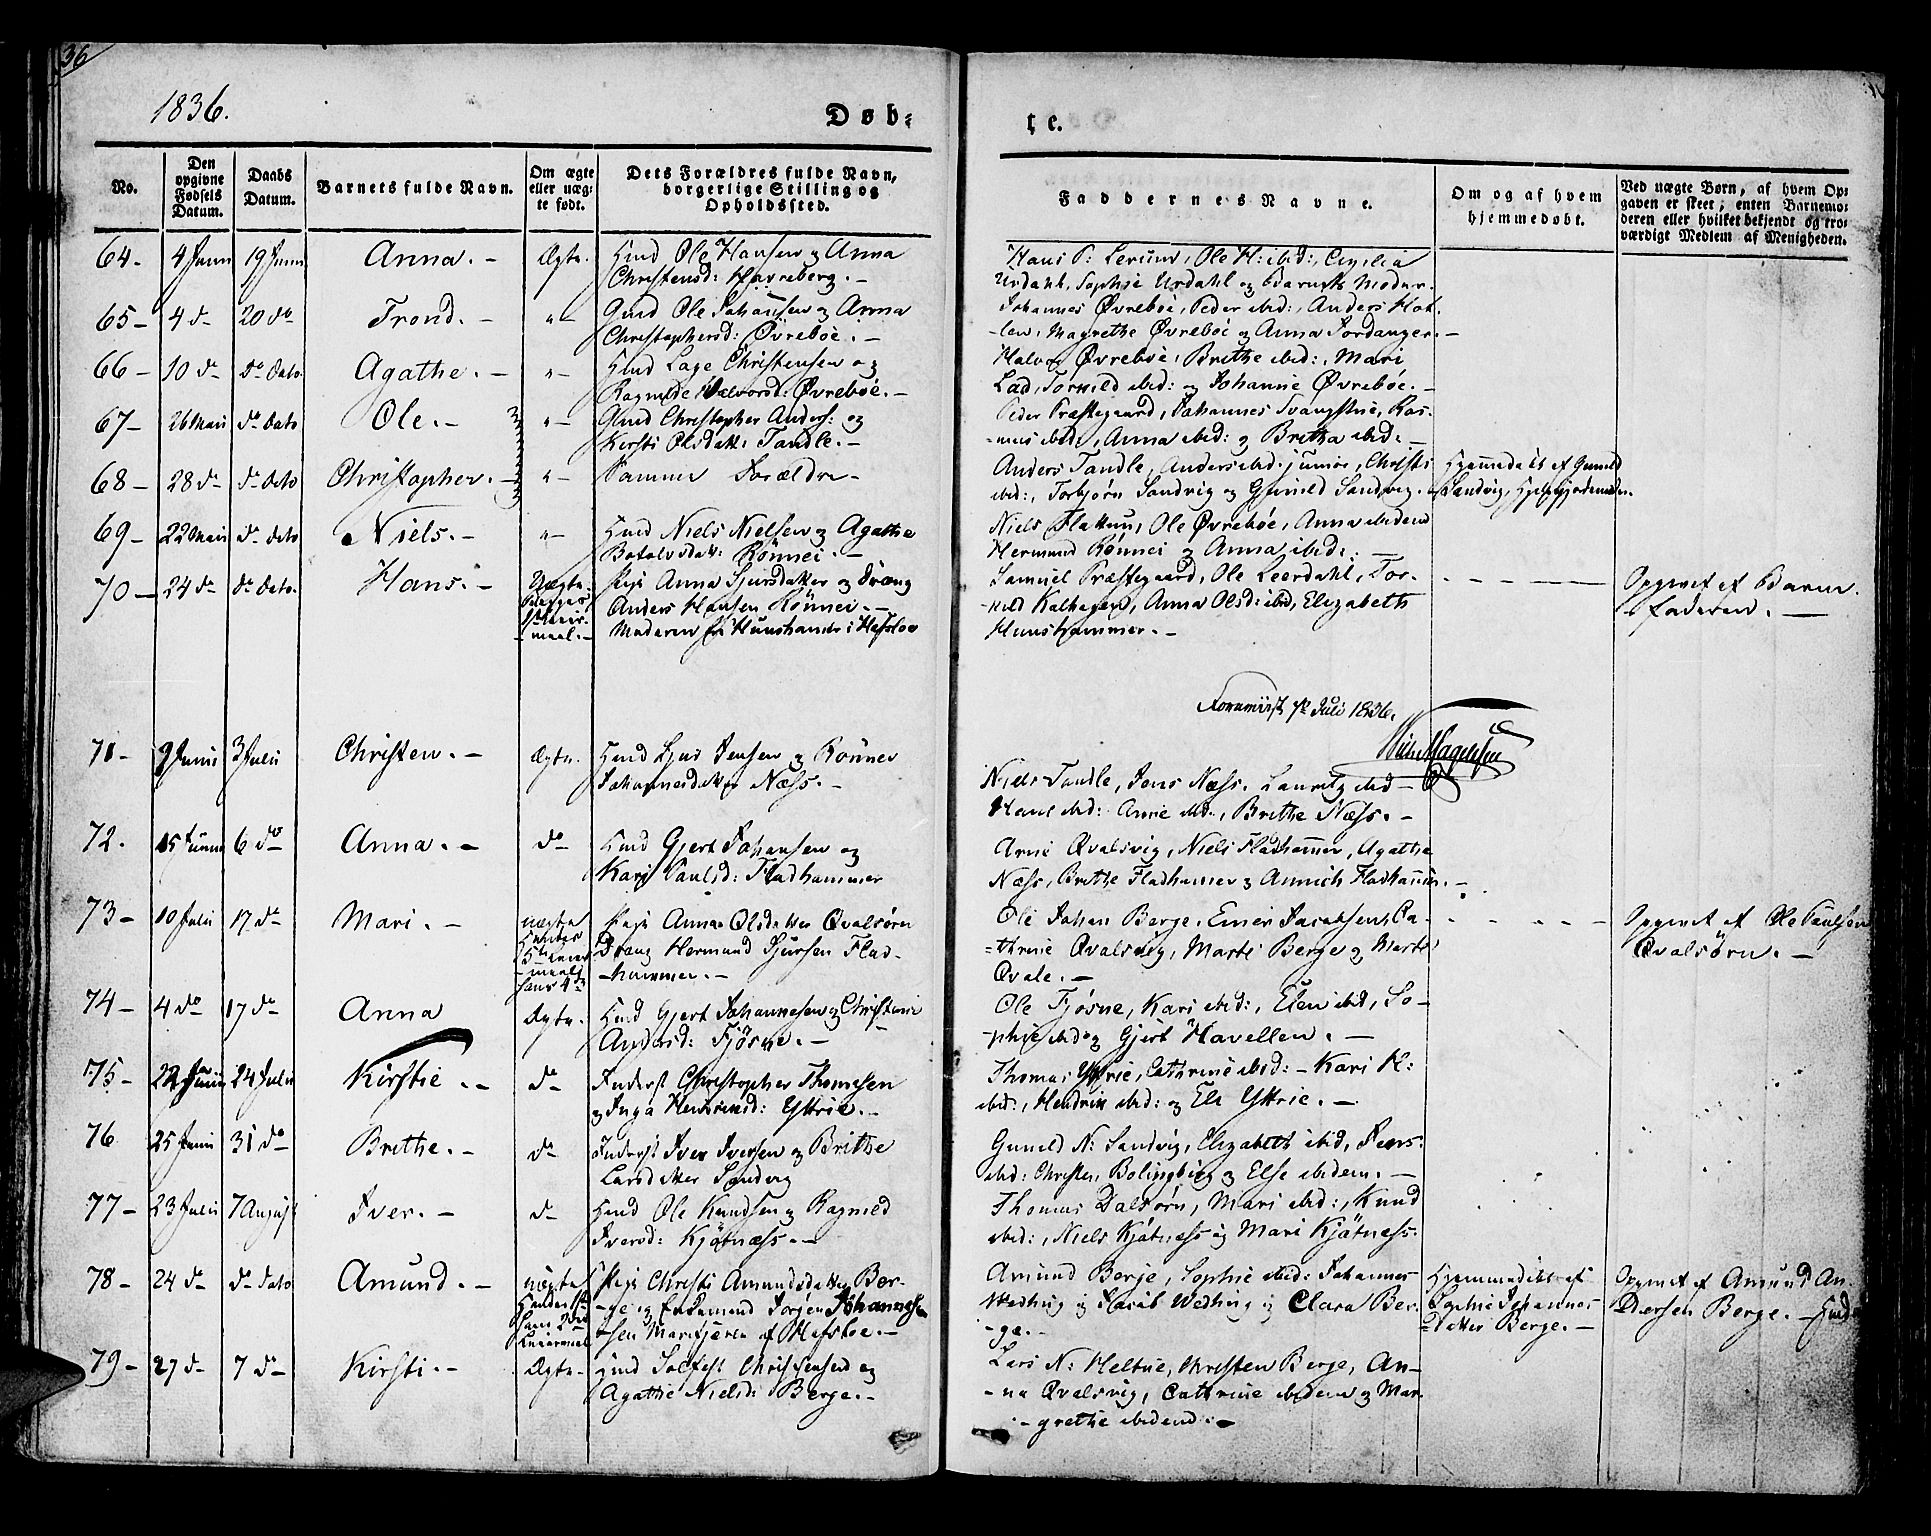 36
1836.
Døb-
te.
No.
Den opgivne Fødsels Datum.
Daabs Datum.
Barnets fulde Navn.
Om ægte eller uægte født.
Dets Forældres fulde Navn, borgerlige Stilling og Opholdssted.
Faddernes Navne.
Om og af hvem hjemmedøbt.
Ved uægte Børn, af hvem Opgaven er skeet; enten Barnemoderen eller hvilket bekjendt og troværdigt Medlem af Menigheden.
64- 4 Juni 19 Juni Anna. - Ægte. Hmd Ole Hansen og Anna
Christensd: Havreberg. -
Hans P: Lerum, Ole H: ibid:, Cicilia
Urdahl, Sophie Urdahl og Barnets Moder.
65- 4 do 20 do Trond. - "- Gmd Ole Johansen og Anna
Christophersd: Øvrebøe. -
Johannes Øvrebøe, Peder ibid:, Anders Hol-
-len, Magrethe Øvrebøe og Anna Sordanger. -
66- 10 do do dato Agathe. - "- Hmd Lage Christensen og
Ragnilde Halvorsd: Øvrebøe. -
Halvor Øvrebøe, Brithe ibid:, Mari
Lad, Tornild ibid: og Johanne Øvrebøe. -
67- 26 Maii do dato Ole. - "- Gmd Christopher Anders: og
Kirsti Olsdatt: Tandle. -
Peder Præstegaard, Johannes Svangstue, Ras-
-mus ibid:, Anna ibid: og Britha ibid: -
68- 28 do do dato Christopher. - "- Samme Forældre -
Anders Tandle, Anders ibid: junior, Christi
ibid:, Torbjørn Sandvig og Gunild Sandvig. -
Hjemmedøbt af Gunild
Sandvig, Hjelpejordemoder.
69- 22 Maii do dato Niels. - "- Hmd Niels Nielsen og Agathe
Botolvsdatt: Rønnei. -
Niels Flattun, Ole Øvrebøe, Anna ibidem
Hermund Rønnei og Anna ibid: -
70- 24 do do dato Hans. - Uægte. Pige Anna Sjursdatter og Dreng
Anders Hansen Rønnei. -
Moderen fra Hunshamer i Hafsloe
Begges
1ste Leier-
-maal. -
Samuel Præstegaard, Ole Leerdahl, Tor-
-nild Kalhagen, Anna Olsd: ibid, Elizabeth
Hunshammer. -
Opgivet af Barne-
-faderen. -
Juli 1836.
71- 9 Junii 3 Julii Christen. - Ægte. Hmd Jensen og Rønnei
Johannesdatter Næss. -
Niels Tandle, Jens Næss, Lauritz ibid -
ibid: Anne ibid:, Brithe Næss. -
72. 15 Junii 6 do Anna. - do Hmd Gjert Johansen og
Kari Paulsd: Fladhammer
Arne Qvalsvig, Niels Fladhammer, Agathe
Næss, Brithe Fladhamer og Annich Fladhammer. -
73- 10 Julii 17 do Mari. - uægte Pige Anna Olsdatter Qvalsørn
Dreng Hermund Sjursen Flad-
-hammer. -
Hendes
5te Leier-
-maal;
hans 4de
Ole Johan Berge, Einer Jacobsen, Ca-
-thrine Qvalsvig, Marte Berge og Marte
Qvale. -
Opgivet af Ole Paulsen
Qvalsørn. -
74- 4 do 17 do Anna Ægte. Hmd Gjert Johannesen og Christine
Andersd: Fjøsne. -
Ole Fjøsne, Kari ibid:, Elen ibid, So-
-phie ibid og Gjert Havellen. -
75- 22 Junii 24 Julii Kirstie. - do Inderst Christopher Thomesen
og Inga Henrichsd: Yttrie. -
Thomas Yttrie, Cathrine ibid: - Kari H:
ibid:, Hendrik ibid: og Eli Yttrie. -
76 25 Junii 31 do Brithe. - do Inderst Iver Iversen og Brithe
Larsdatter Sandvig
Gunild N: Sandvig, Elizabeth ibid, Jens
ibid: Christen Bolingberg og Else ibidem. -
77- 23 Julii 7 August Iver. - do Hmd Ole Knudsen og Ragnild
Iversd: Kjøtness. -
Thomas Dalsørn, Mari ibid:, Knud
ibid:, Niels Kjøtness og Mari Kjøtness.
78- 24 do do dato Amund. - uægte Pige Christi Amundsdatter Ber-
-ge og Enkemand Jørgen Johannesen
af Hafsloe. -
Hendes 1ste
hans 2det
Leiermaal
Amund Berge, Sophie ibid: Johannes
Wedhug og Jacob Wedhug og Clara Ber-
-ge. -
Hjemmedøbt af
Sophie Johannes-
-datter Berge. -
Opgivet af Amund An-
dersen Berge. -
79- 27 do 7 do Kirsti. - Ægte. Hmd Solfest Christensen og
Agathe Nielsd: Berge. -
Lars N: Heltne, Christen Berge, An-
-na Qvalsvig, Cathrine ibidem og Mar-
-grethe ibidem: -